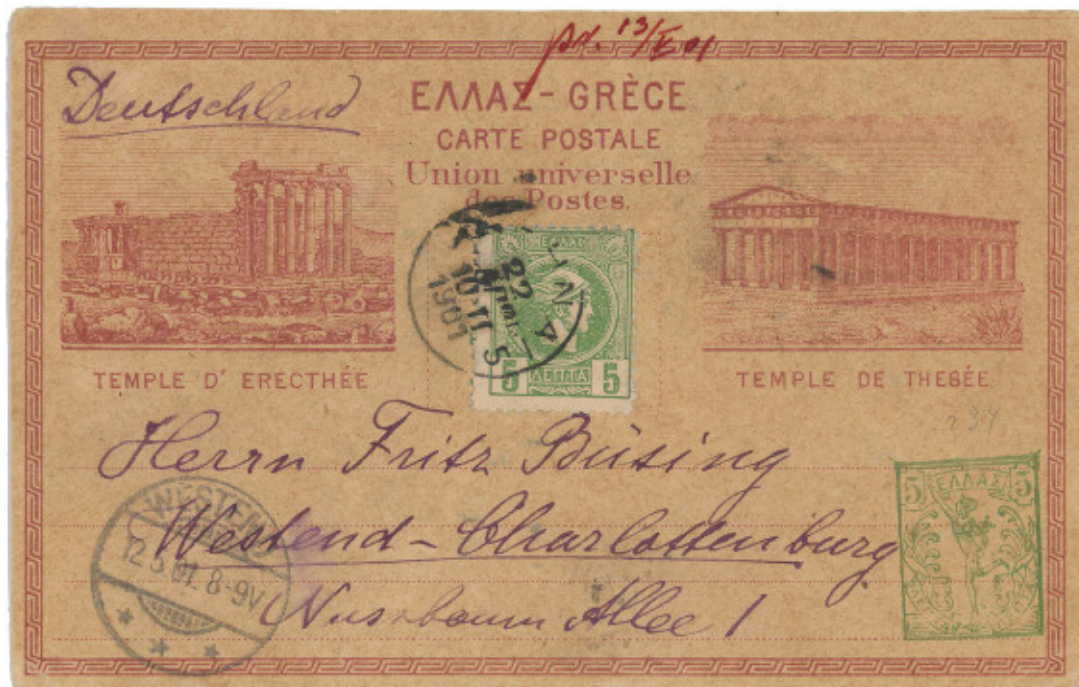 pr. 13/V 01
Deutschland
ΕΛΛΑΣ-GRÈCE
CARTE POSTALE
Union universelle
des Postes.
ΕΛΛΑΣ
5 ΛΕΠΤΑ 5
22
10-11
1901
5
TEMPLE D' ERECTHÉE
TEMPLE DE THEBÉE
234
Herrn Fritz Büsing
Westend-Charlottenburg
Nussbaum Allee 1
WESTEND
12.5.01. 8-9V.
5 ΕΛΛΑΣ 5